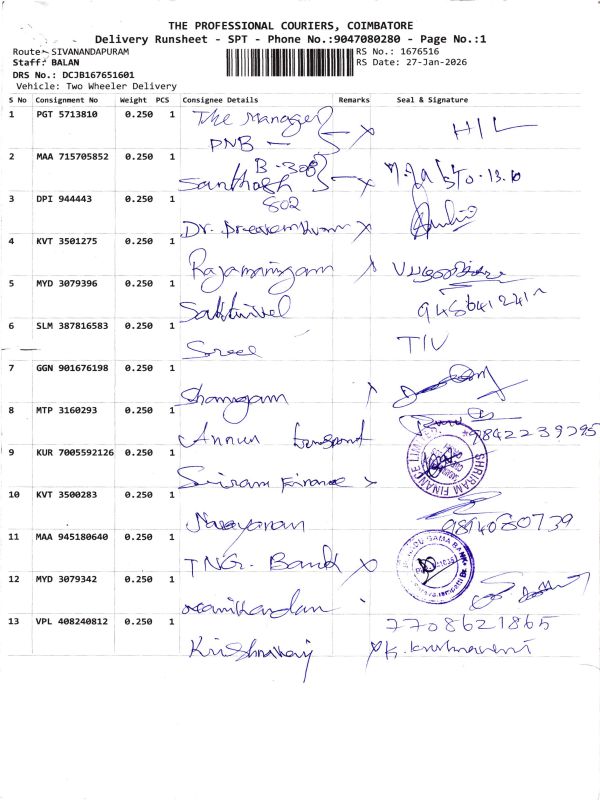 THE PROFESSIONAL COURIERS, COIMBATORE
Delivery Runsheet - SPT - Phone No.:9047080280 - Page No.:1
Route:- SIVANANDAPURAM RS No.: 1676516
Staff: BALAN RS Date: 27-Jan-2026
DRS No.: DCJB167651601
Vehicle: Two Wheeler Delivery
S No Consignment No Weight PCS Consignee Details Remarks Seal & Signature
1 PGT 5713810 0.250 1 The Manager
PNB H/L
2 MAA 715705852 0.250 1 B-308
Santhosh
3 DPI 944443 0.250 1 802
Dr.
4 KVT 3501275 0.250 1
Rajamanigam
5 MYD 3079396 0.250 1
Sakthivel
6 SLM 387816583 0.250 1
Sree T/V
7 GGN 901676198 0.250 1
Shanmugam
8 MTP 3160293 0.250 1
Annur transport 9842239295
9 KUR 7005592126 0.250 1
Sriram Finance SHRIRAM FINANCE LIMITED
10 KVT 3500283 0.250 1
Narayanan 9894080739
11 MAA 945180640 0.250 1
TNG. Bank
12 MYD 3079342 0.250 1
Manikandan
13 VPL 408240812 0.250 1 7708621865
Krishnaveni K. Krishnaveni